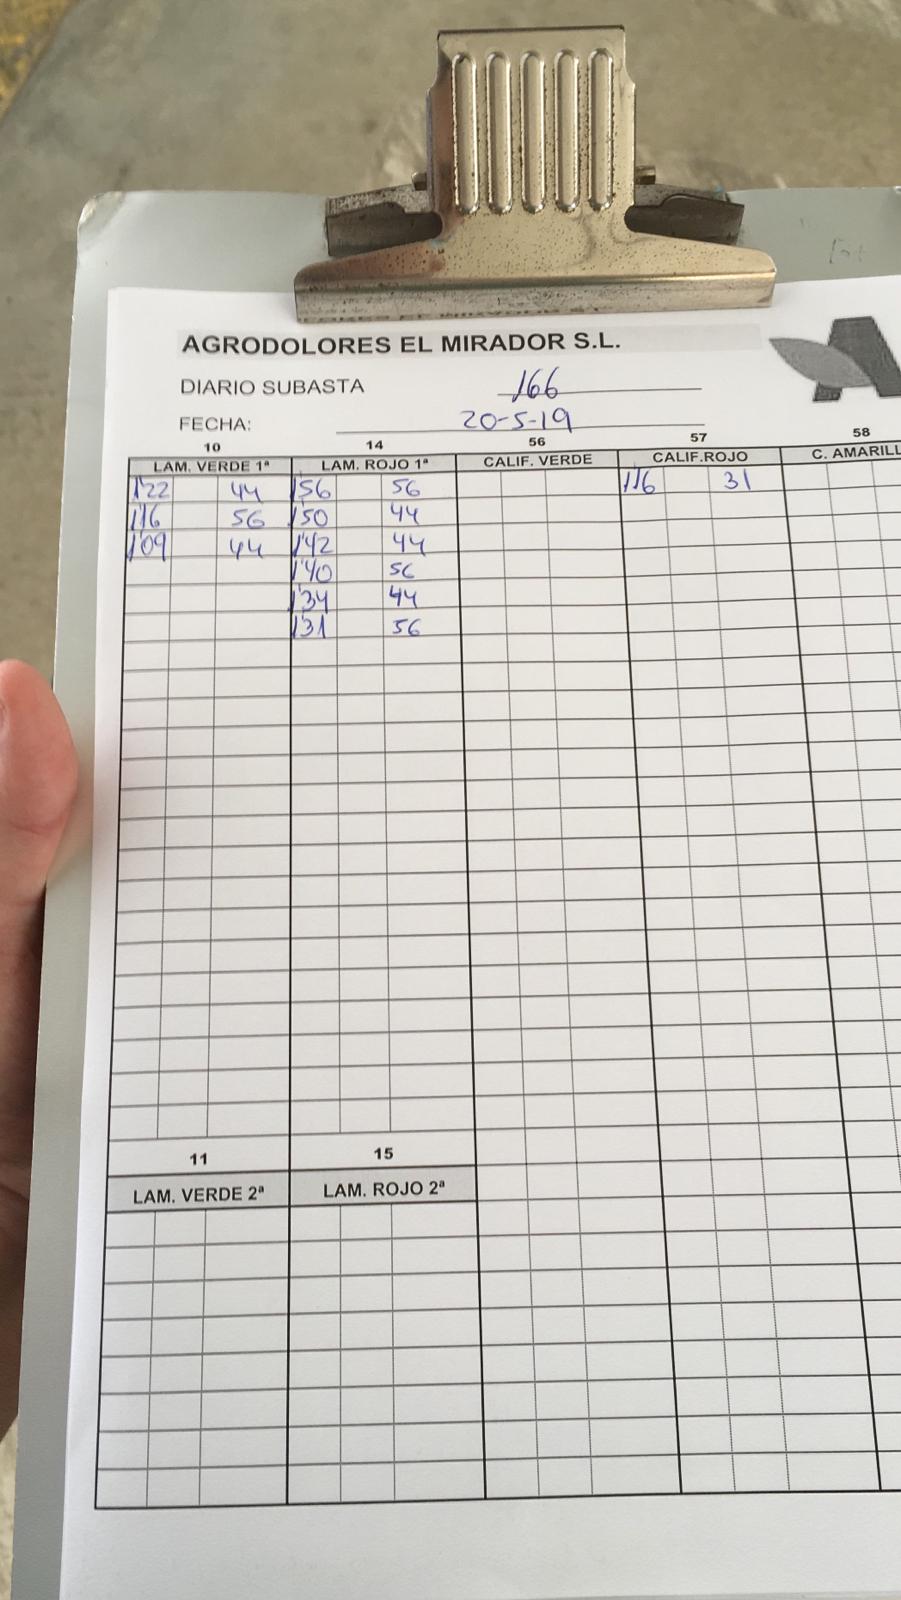 AGRODOLORES EL MIRADOR S.L.
DIARIO SUBASTA 166
FECHA: 20-5-19
10 14 56 57 58
LAM. VERDE 1ª LAM. ROJO 1ª CALIF. VERDE CALIF.ROJO C. AMARILL
1'22 44 1'56 56 1'16 31
1'16 56 1'50 44
1'09 44 1'42 44
1'40 56
1'34 44
1'31 56
11 15
LAM. VERDE 2ª LAM. ROJO 2ª